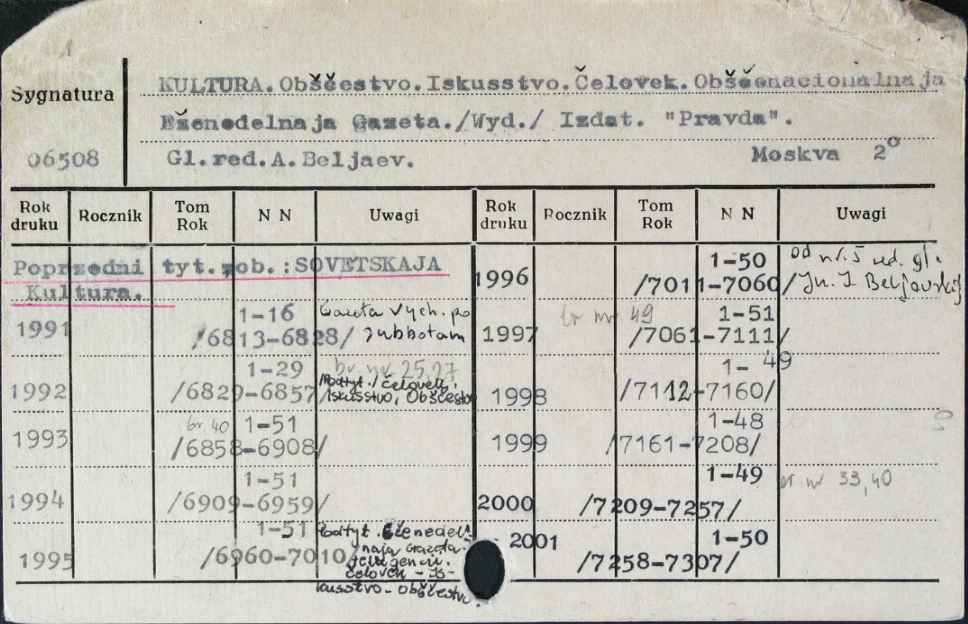 Sygnatura
KULTURA.Obščestvo.Iskusstvo.Čelovek.Obščenacionalnaja
Eženedelnaja Gazeta./Wyd./ Izdat. "Pravda".
06508
Gl.red.A.Beljaev. Moskva 2º
Rok druku Rocznik Tom Rok N N Uwagi Rok druku Rocznik Tom Rok N N Uwagi
Poprzedni tyt.zob.:SOVETSKAJA
Kultura.
1996 1-50 od nr.5 red. gł.
/7011-7060/
1991 1-16 Gazeta vych. po
/6813-6828/ subbotam
1997 br nr 49 1-51
/7061-7111/
1992 1-29 br nr 25,27
/6829-6857/ /Podtyt./Čelovek,
Iskusstvo, Obščestvo
1998 1-49
/7112-7160/
1993 br 40 1-51
/6858-6908/
1999 1-48
/7161-7208/
1994 1-51
/6909-6959/
2000 1-49 br nr 33,40
/7209-7257/
1995 1-51 Podtyt. Eženedel-
/6960-7010/ naja Gazeta
Čelovek - Is-
kusstvo - Obščestvo.
2001 1-50
/7258-7307/